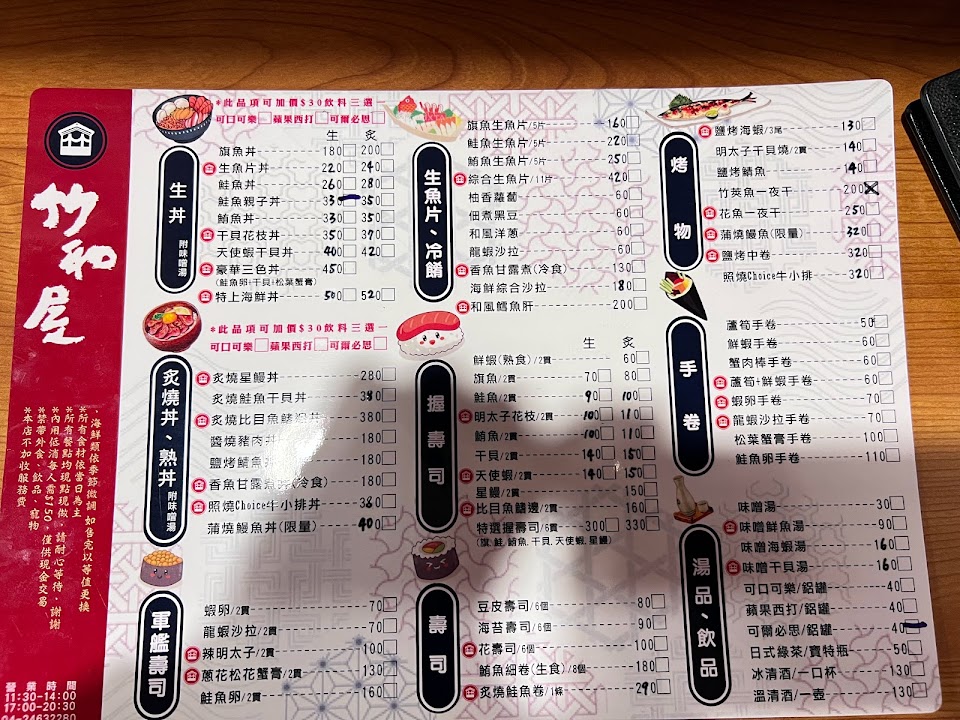 竹和屋
*海鮮類依季節微調，如售完以等值更換
*所有食材依當日為主
*所有餐點均現點現做，請耐心等待，謝謝
*內用低消每人需$150，僅供現金交易
*禁帶外食、飲品、寵物
*本店不加收服務費
營業時間
11:30-14:00
17:00-20:30
04-24632280
*此品項可加價$30飲料三選一
可口可樂 蘋果西打 可爾必思
生丼 附味噌湯
生 炙
旗魚丼 180 200
生魚片丼 220 240
鮭魚丼 260 280
鮭魚親子丼 330 350
鮪魚丼 330 350
干貝花枝丼 350 370
天使蝦干貝丼 400 420
豪華三色丼 450
(鮭魚卵+干貝+松葉蟹膏)
特上海鮮丼 500 520
*此品項可加價$30飲料三選一
可口可樂 蘋果西打 可爾必思
炙燒丼、熟丼 附味噌湯
炙燒星鰻丼 280
炙燒鮭魚干貝丼 380
炙燒比目魚鰭邊丼 380
醬燒豬肉丼 180
鹽烤鯖魚丼 180
香魚甘露煮丼(冷食) 180
照燒Choice牛小排丼 380
蒲燒鰻魚丼(限量) 400
軍艦壽司
蝦卵/2貫 70
龍蝦沙拉/2貫 70
辣明太子/2貫 100
蔥花松花蟹膏/2貫 130
鮭魚卵/2貫 160
生魚片、冷餚
旗魚生魚片/5片 160
鮭魚生魚片/5片 220
鮪魚生魚片/5片 250
綜合生魚片/11片 420
柚香蘿蔔 60
佃煮黑豆 60
和風洋蔥 60
龍蝦沙拉 60
香魚甘露煮(冷食) 130
海鮮綜合沙拉 180
和風鱈魚肝 200
握壽司
生 炙
鮮蝦(熟食)/2貫 60
旗魚/2貫 70 80
鮭魚/2貫 90 100
明太子花枝/2貫 100 110
鮪魚/2貫 100 110
干貝/2貫 140 150
天使蝦/2貫 140 150
星鰻/2貫 150
比目魚鰭邊/2貫 160
特選握壽司/6貫 300 330
(旗,鮭,鮪魚,干貝,天使蝦,星鰻)
壽司
豆皮壽司/6個 80
海苔壽司/6個 90
花壽司/6個 100
鮪魚細卷(生食)/8個 180
炙燒鮭魚卷/1條 290
烤物
鹽烤海蝦/3尾 130
明太子干貝燒/2貫 140
鹽烤鯖魚 140
竹莢魚一夜干 200
花魚一夜干 250
蒲燒鰻魚(限量) 320
鹽烤中卷 320
照燒Choice牛小排 320
手卷
蘆筍手卷 50
鮮蝦手卷 60
蟹肉棒手卷 60
蘆筍+鮮蝦手卷 70
蝦卵手卷 70
龍蝦沙拉手卷 70
松葉蟹膏手卷 100
鮭魚卵手卷 110
湯品、飲品
味噌湯 30
味噌鮮魚湯 90
味噌海蝦湯 160
味噌干貝湯 160
可口可樂/鋁罐 40
蘋果西打/鋁罐 40
可爾必思/鋁罐 40
日式綠茶/寶特瓶 50
冰清酒/一口杯 130
溫清酒/一壺 130